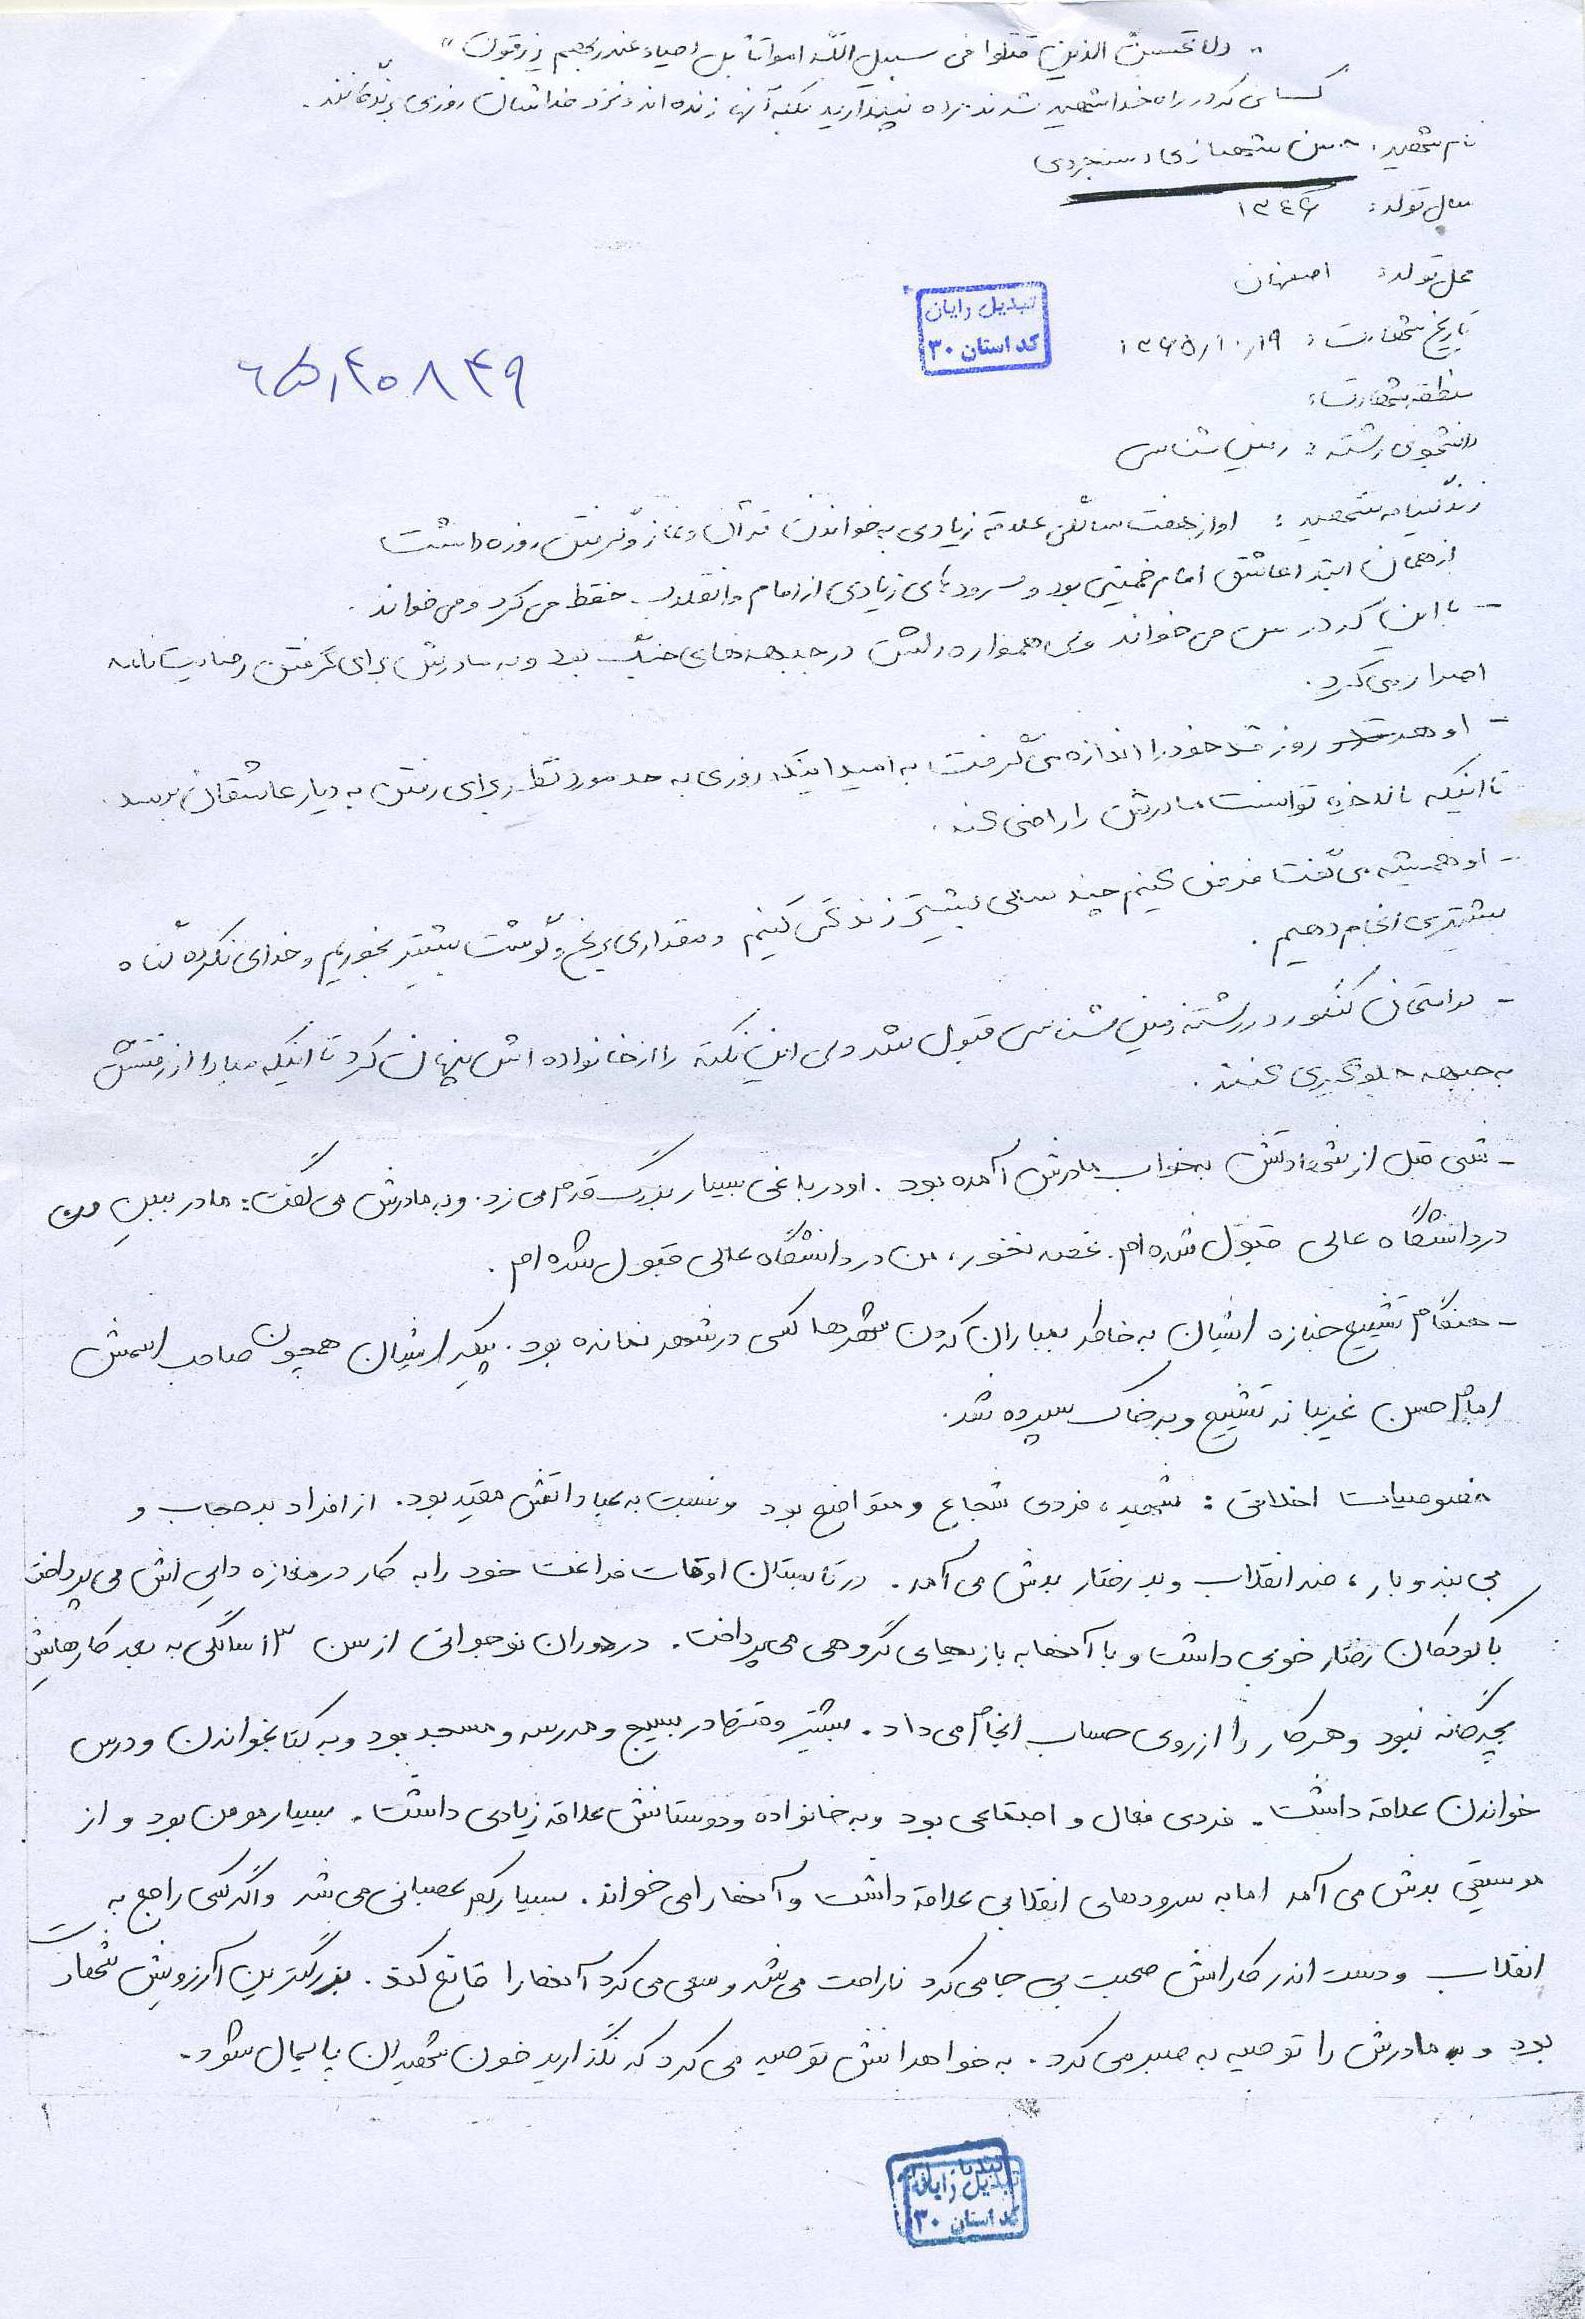 " ولا تحسبن الذین قتلوا فی سبیل الله امواتا بل احیاء عند ربهم یرزقون "
کسانی که در راه خدا شهید شدند مرده نپندارید بلکه آنها زنده اند و نزد خدایشان روزی
نام شهید: حسن شهبازی دستجردی
سال تولد: ۱۳۴۶
محل تولد: اصفهان
تبدیل رایان
کد استان ۳۰
تاریخ شهادت: ۱۳۶۵/۱۰/۱۹
۶۵۱۴۰۸۴۹
منطقه شهادت:
دانشجوی رشته: زمین شناسی
زندگینامه شهید: او از هفت سالگی علاقه زیادی به خواندن قرآن و نماز و گرفتن روزه داشت
از همان ابتدا عاشق امام خمینی بود و سرودهای زیادی از امام و انقلاب حفظ می کرد و می خواند.
- با این که درس می خواند ولی همواره دلش در جبهه های جنگ بود و به مادرش برای گرفتن رضایت نامه
اصرار می کرد.
- او هر روز قد خود را اندازه می گرفت به امید اینکه روزی به حد مورد نظر برای رفتن به دیار عاشقان برسد.
تا اینکه بالاخره توانست مادرش را راضی کند.
- او همیشه می گفت فرض کنیم چند سالی بیشتر زندگی کنیم و مقداری برنج و گوشت بیشتر بخوریم و خدای نکرده گناه
بیشتری انجام دهیم.
- در امتحان کنکور در رشته زمین شناسی قبول شد ولی این نکته را از خانواده اش پنهان کرد تا اینکه مبادا از رفتنش
به جبهه جلوگیری کنند.
- شبی قبل از شهادتش به خواب مادرش آمده بود. او در باغی بسیار بزرگ قدم می زد. و به مادرش می گفت: مادر ببین من
در دانشگاه عالی قبول شده ام. غصه نخور، من در دانشگاه عالی قبول شده ام.
- هنگام تشییع جنازه ایشان به خاطر بمباران کردن شهرها کسی در شهر نمانده بود. پیکر ایشان همچون صاحب اسمش
امام حسن غریبانه تشییع و به خاک سپرده شد.
خصوصیات اخلاقی: شهید، فردی شجاع و متواضع بود و نسبت به عباداتش مقید بود. از افراد بد حجاب و
بی بند و بار، ضد انقلاب و بد رفتار بدش می آمد. در تابستان اوقات فراغت خود را به کار در مغازه دایی اش می پرداخت
با کودکان رفتار خوبی داشت و با آنها به بازیهای گروهی می پرداخت. در دوران نوجوانی از سن ۱۳ سالگی به بعد کارهایش
بچگانه نبود و هر کار را از روی حساب انجام می داد. بیشتر وقتها در بسیج و مدرسه و مسجد بود و به کتابخواندن و درس
خواندن علاقه داشت. فردی فعال و اجتماعی بود و به خانواده و دوستانش علاقه زیادی داشت. بسیار مومن بود و از
موسیقی بدش می آمد اما به سرودهای انقلابی علاقه داشت و آنها را می خواند. بسیار کم عصبانی می شد و اگر کسی راجع به
انقلاب و دست اندر کارانش صحبت بی جا می کرد ناراحت می شد و سعی می کرد آنها را قانع کند. بزرگترین آرزویش شهادت
بود و به مادرش را توصیه به صبر می کرد. به خواهرانش توصیه می کرد که نگذارید خون شهیدان پایمال شود.
تبدیل رایان
کد استان ۳۰